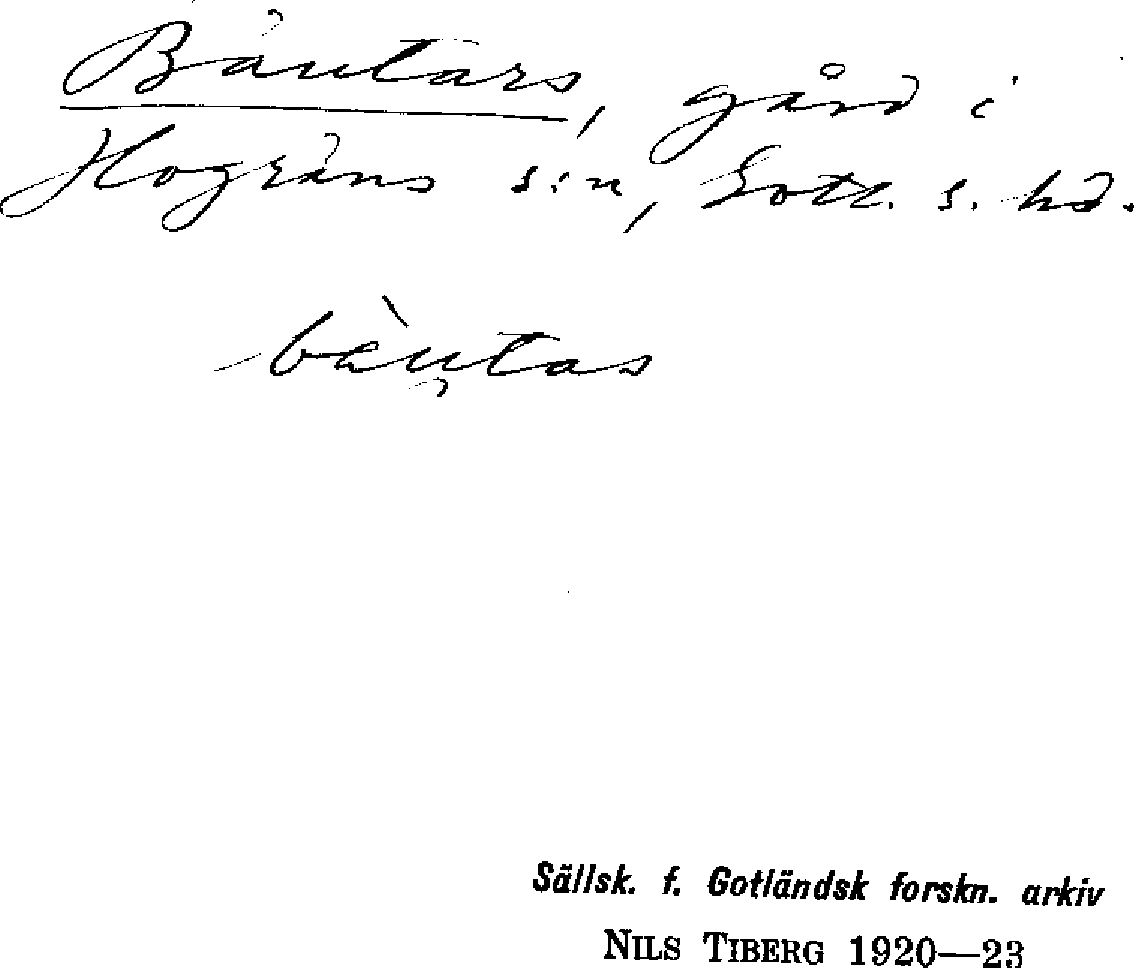 Båutars, gård i
Hogräns s:n, Gotl. s. hd.
bàu̯tas
Sällsk. f. Gotländsk forskn. arkiv
NILS TIBERG 1920—23